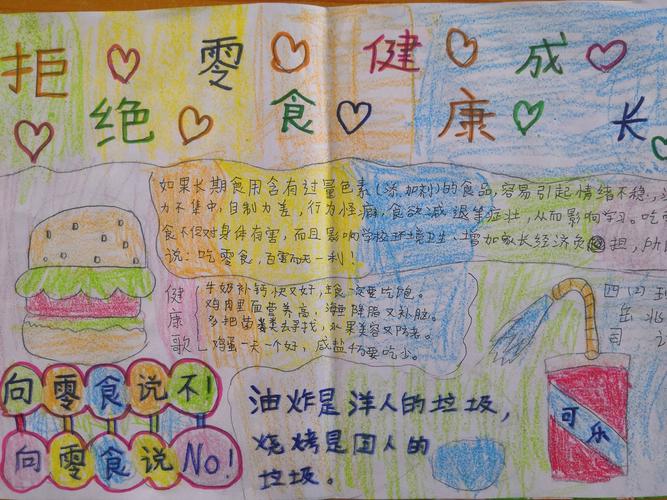 拒绝零食 健康成长
如果长期食用含有过量色素(添加剂)的食品,容易引起情绪不稳,
力不集中,自制力差,行为怪癖,食欲减退等症壮,从而影响学习。吃
食不但对身体有害,而且影响学校环境卫生,增加家长经济负担,所
说:吃零食,百害而无一利!
健康歌
牛奶补钙快又好,主食一定要吃饱。
鸡肉里面营养高,海鲜降脂又补脑。
多把菌类去寻找,水果美容又防老。
鸡蛋一天一个好,咸盐千万要吃少。
四(2)
岳兆
司
向零食说不!
向零食说No!
油炸是洋人的垃圾,
烧烤是国人的
垃圾。
可乐